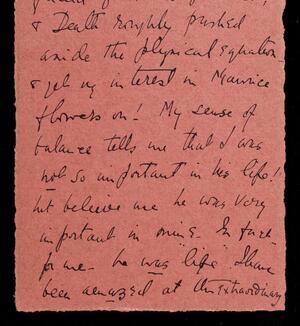 & Death roughly pushed
aside the physical equation
& yet my interest in Maurice
flowers on! My sense of
balance tells me that I was
not so important in his life!
but believe me he was very
important in mine. In fact
for me he was life I have
been amazed at this extraordinary